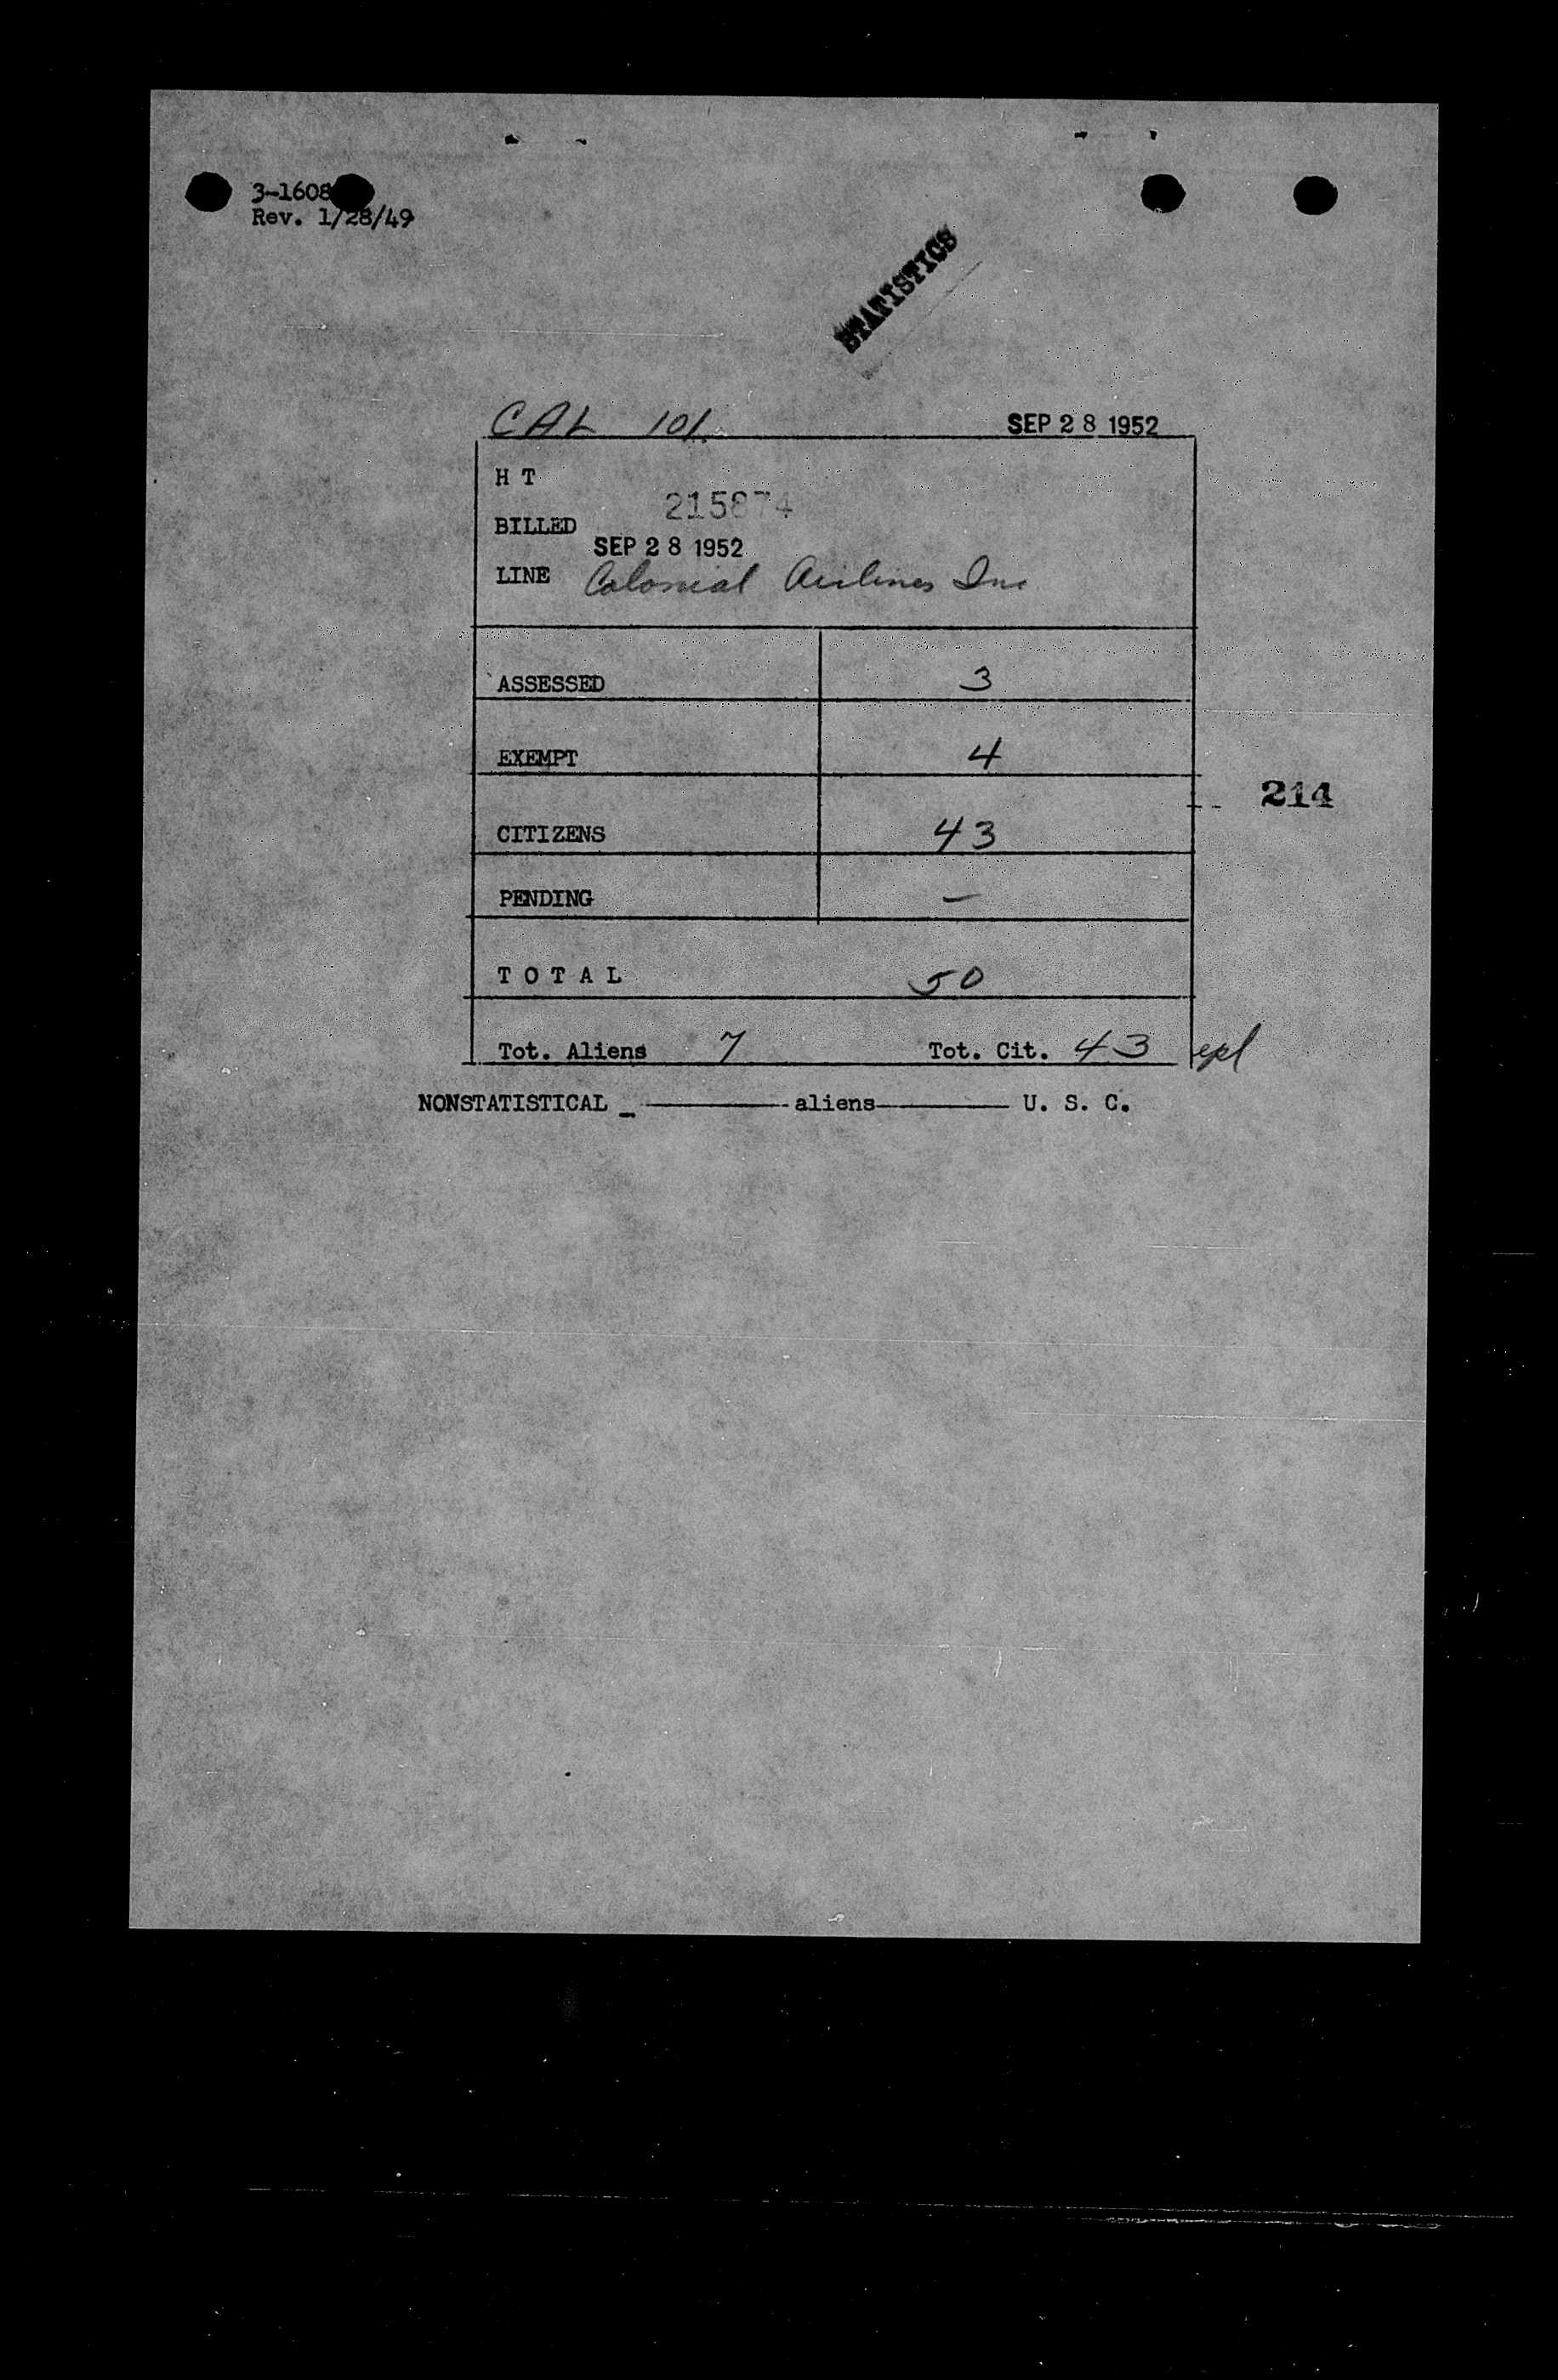 3-1608
Rev. 1/28/49
STATISTICS
CAL 101 SEP 28 1952
H T
215874
BILLED
SEP 28 1952
LINE Colonial Airlines Inc
ASSESSED 3
EXEMPT 4
214
CITIZENS 43
PENDING —
T O T A L 50
Tot. Aliens 7 Tot. Cit. 43
NONSTATISTICAL _ ———— aliens ———— U. S. C.